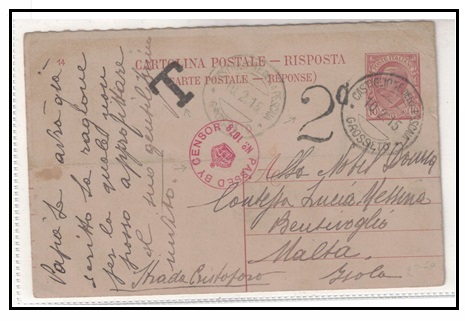 14
CARTOLINA POSTALE - RISPOSTA
(CARTE POSTALE - RÉPONSE)
T
2d
PASSED BY CENSOR
GROSSETO
Papà Le avrà già
scritto la ragione
per la quale non
posso approfittare
il suo gentilissimo
invito
Alla Nobil Donna
Contessa Lucia Messina
Bentivoglio
Malta
Strada Cristoforo
Isola